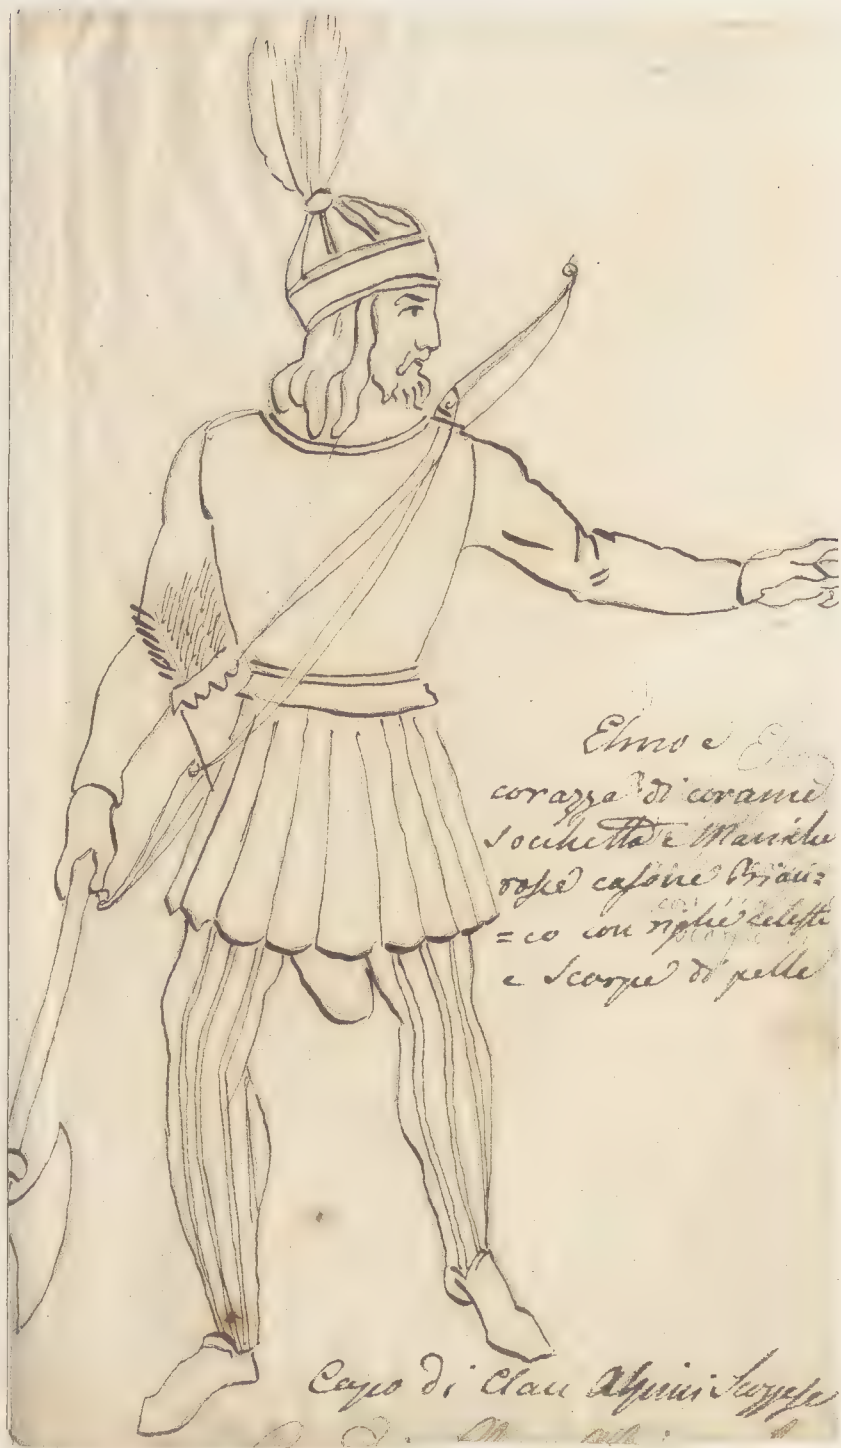 Elmo e
corazza di corame
Sochetto e Maniche
rosse casone Bian=
=co con righe celesti
e Scarpe di pelle
Capo di Clan Alpini Scozzese